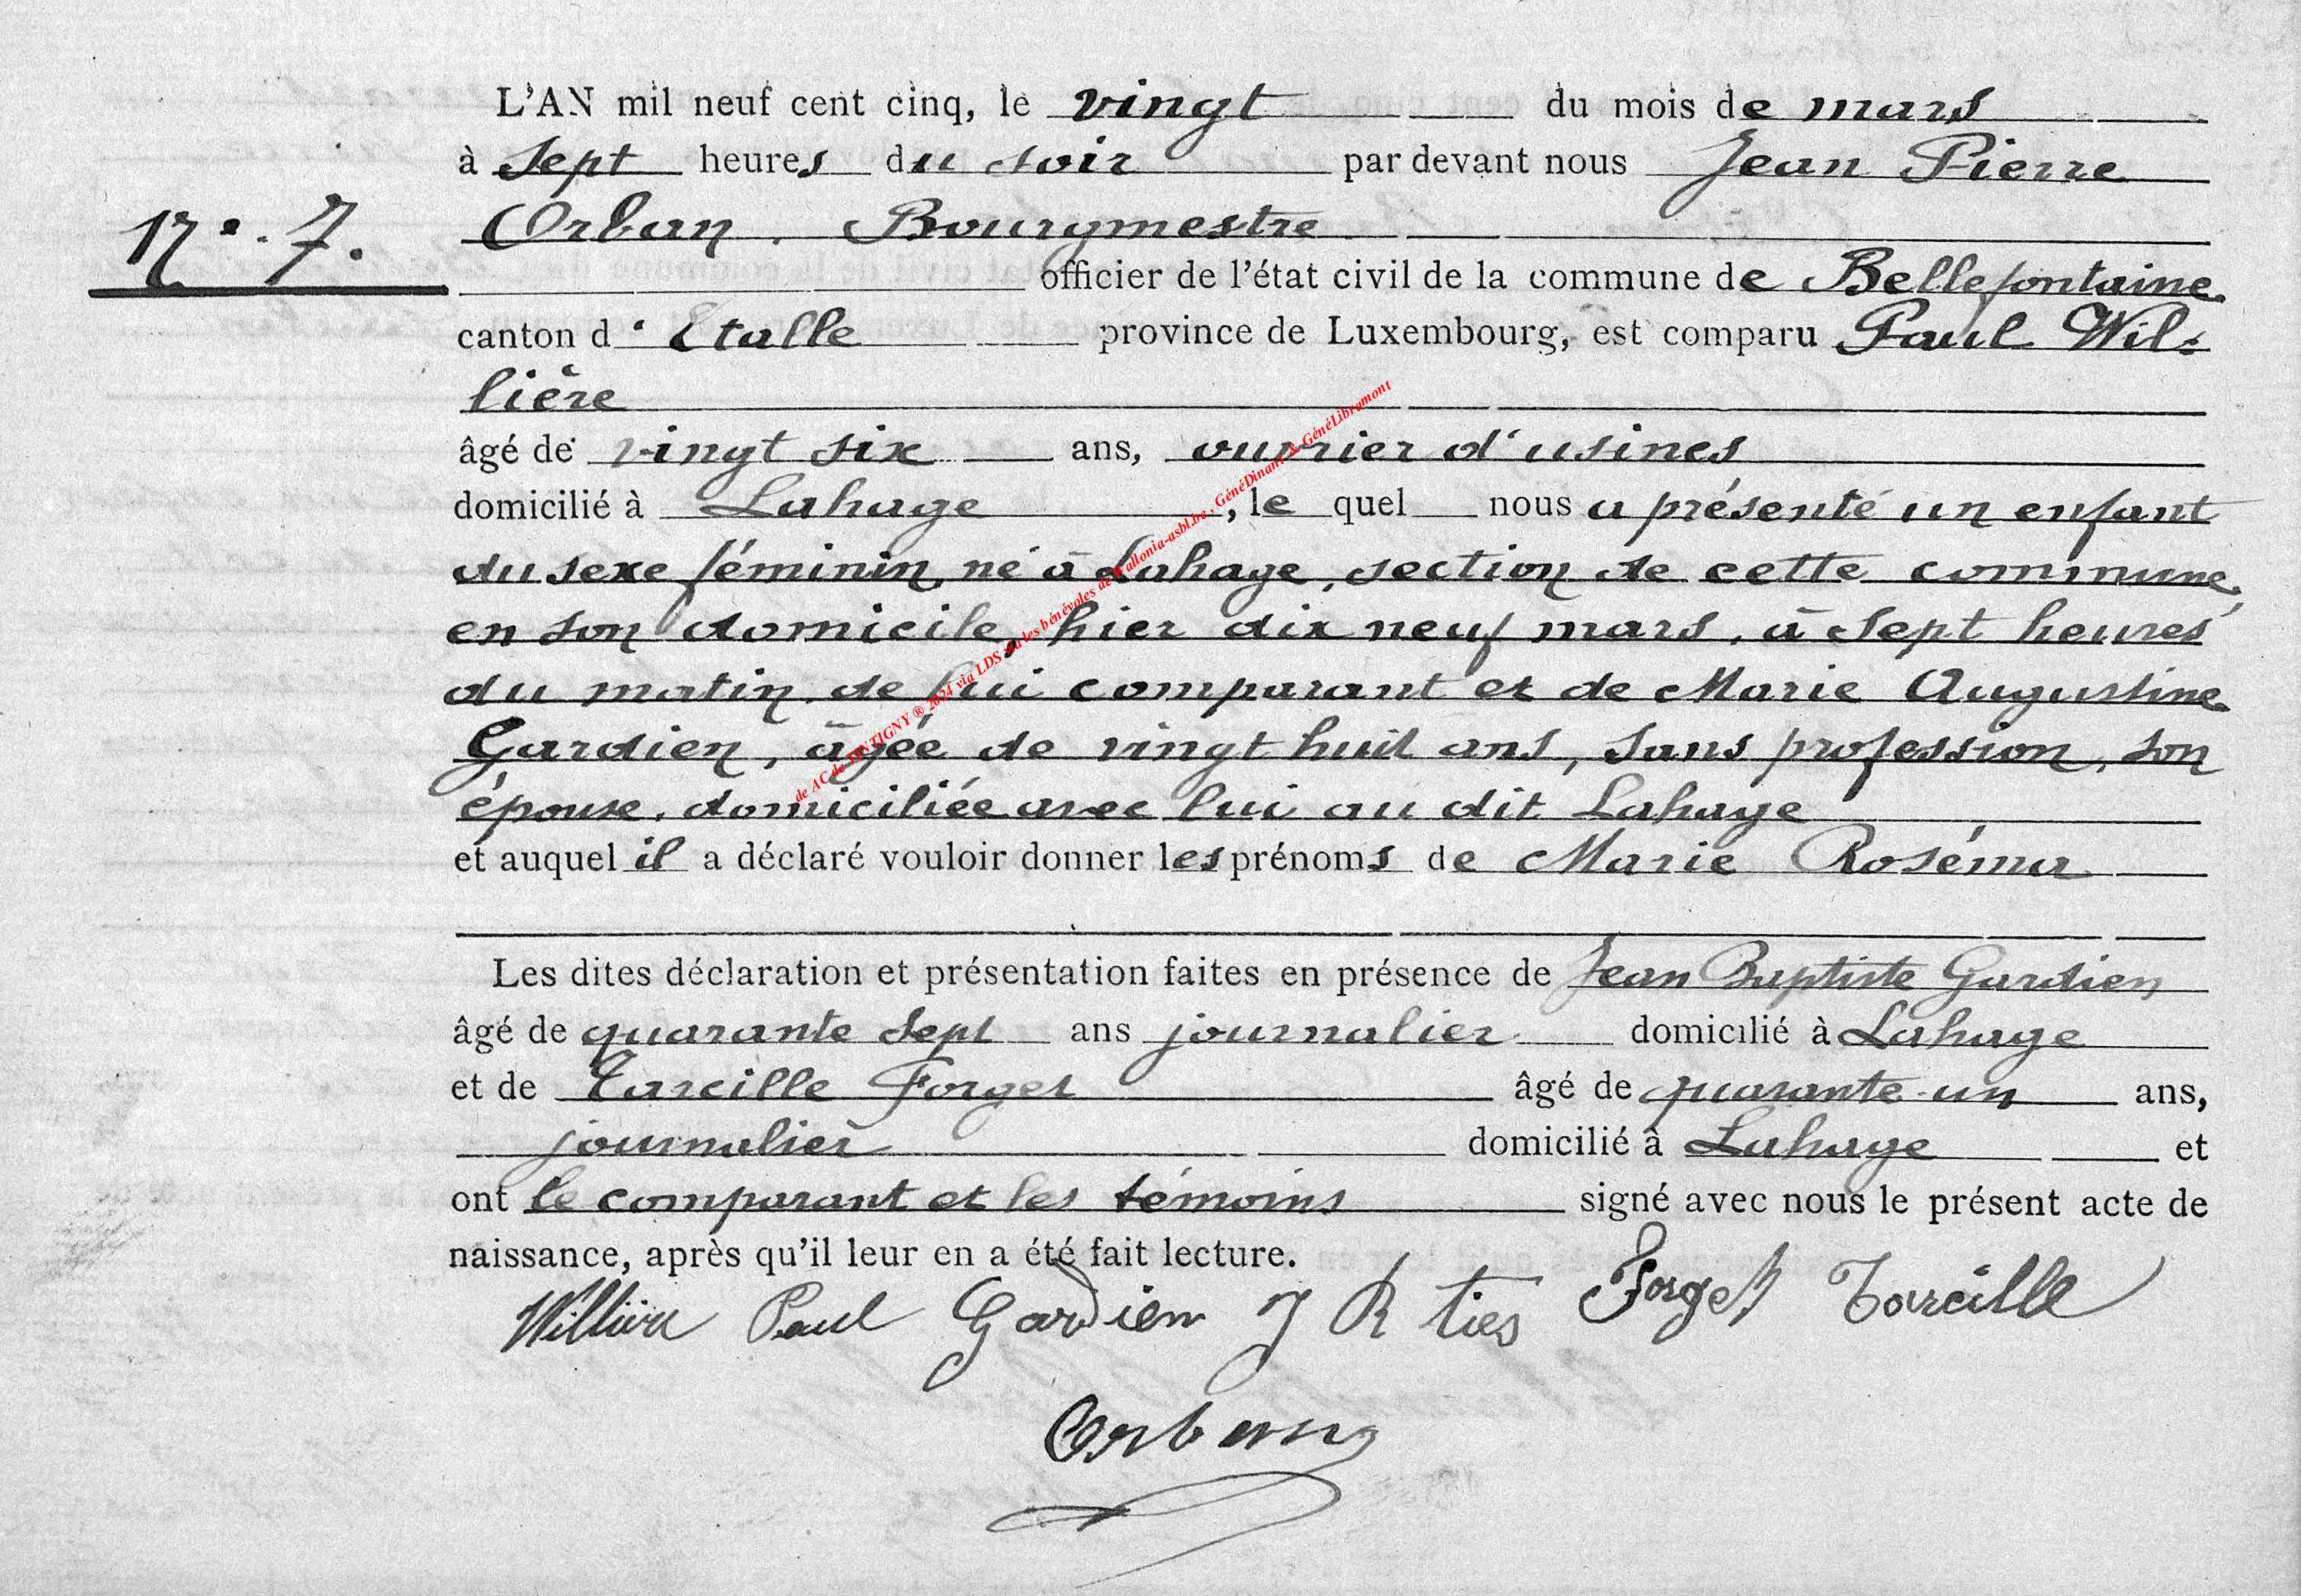 L'AN mil neuf cent cinq, le vingt du mois de mars
à sept heures du soir par devant nous Jean Pierre
N° 7.
Orban, Bourgmestre
officier de l'état civil de la commune de Bellefontaine
canton d'Etalle province de Luxembourg, est comparu Paul Wil-
lière
âgé de vingt six ans, ouvrier d'usines
domicilié à Lahage, le quel nous a présenté un enfant
du sexe féminin, né à Lahage, section de cette commune,
en son domicile, hier dix neuf mars, à sept heures
du matin, de lui comparant et de Marie Augustine
Gardien, âgée de vingt huit ans, sans profession, son
épouse, domiciliée avec lui au dit Lahage
et auquel il a déclaré vouloir donner les prénoms de Marie Roséma
Les dites déclaration et présentation faites en présence de Jean Baptiste Gardien
âgé de quarante sept ans journalier domicilié à Lahage
et de Tarcille Forget âgé de quarante un ans,
journalier domicilié à Lahage et
ont le comparant et les témoins signé avec nous le présent acte de
naissance, après qu'il leur en a été fait lecture.
Willière Paul Gardien J B ties Forget Tarcille
Orban
de AC de TINTIGNY ® 2024 via LDS via les bénévoles de Wallonia-asbl.be, GénéDinant & GénéLibramont